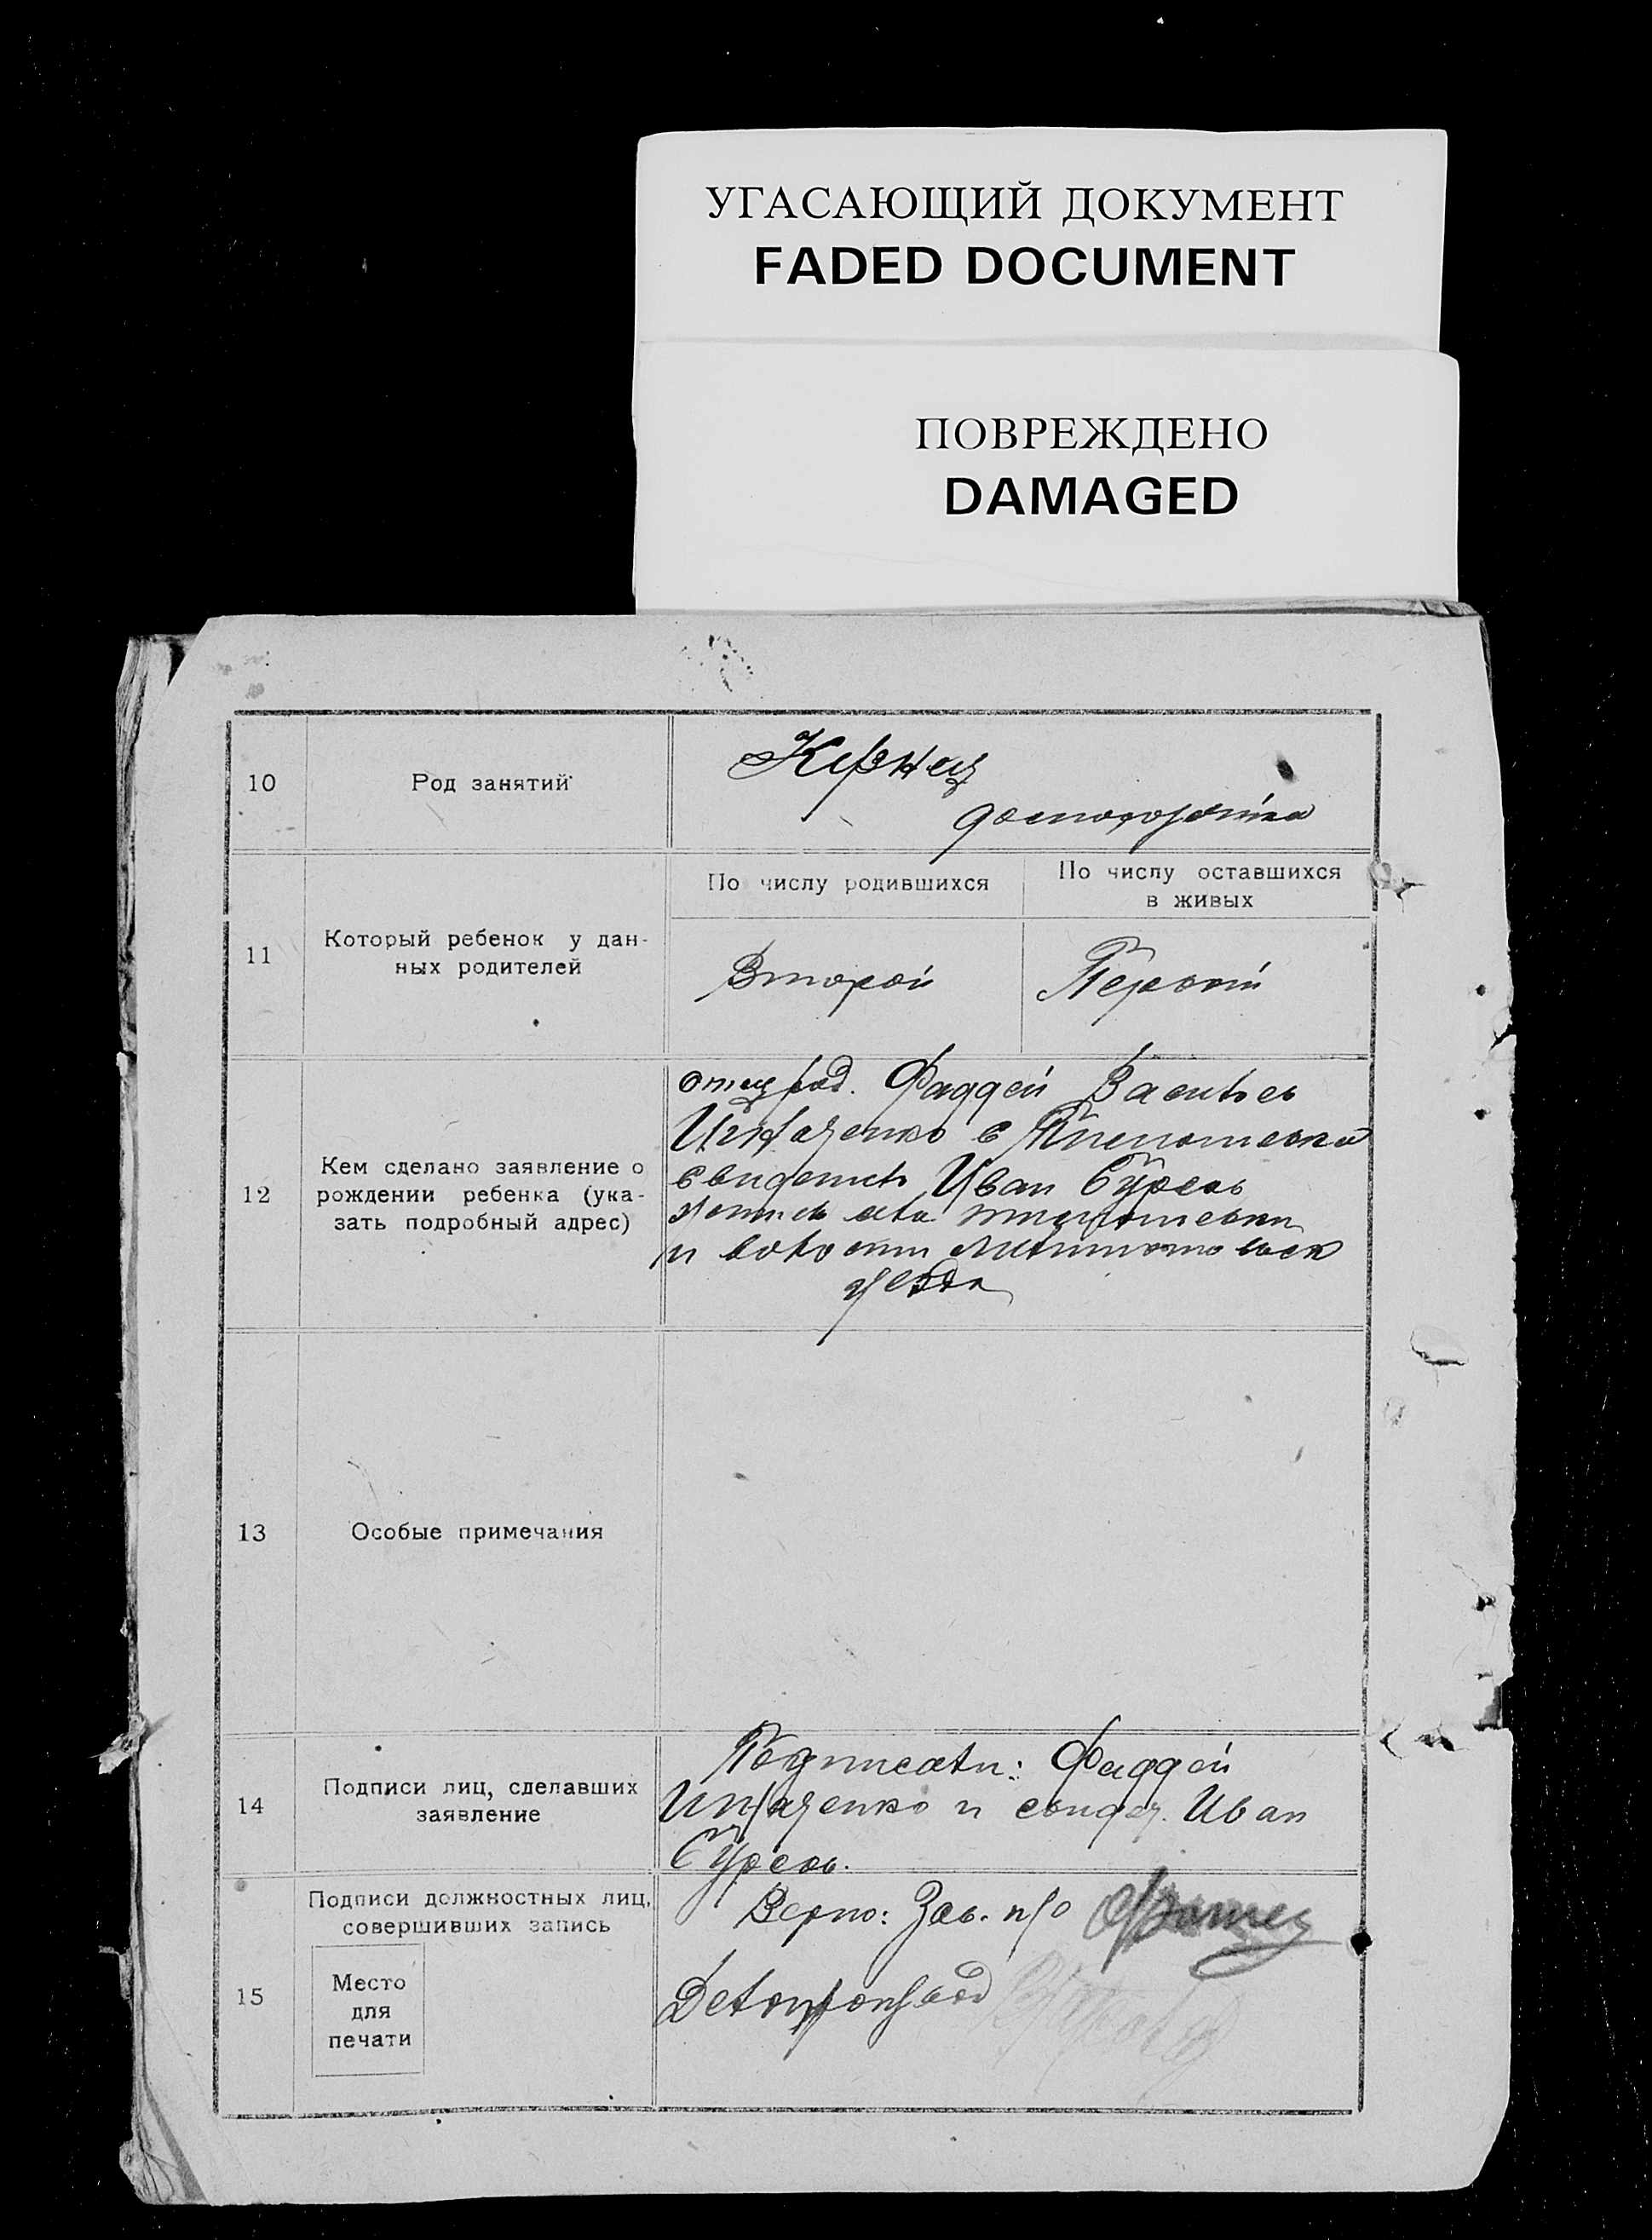 УГАСАЮЩИЙ ДОКУМЕНТ
FADED DOCUMENT
ПОВРЕЖДЕНО
DAMAGED
10
Род занятий
Кузнец
домохозяйка
11
Который ребенок у дан-
ных родителей
По числу родившихся
По числу оставшихся
в живых
Второй
Первый
12
Кем сделано заявление о
рождении ребенка (ука-
зать подробный адрес)
отец Фаддей
Игнатенко с
свидетель Иван
и волости
уезда
13
Особые примечания
14
Подписи лиц, сделавших
заявление
Подписали: Фаддей
Игнатенко и свидет. Иван
15
Подписи должностных лиц,
совершивших запись
Место
для
печати
Верно: Зав. п/о
Делопроизвод